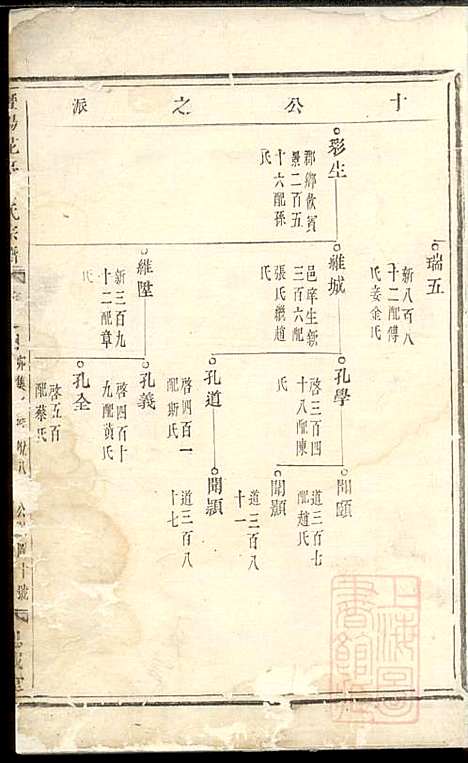 十公之派
瑞五
新八百八
十二配傅
氏妾金氏
彩生
郡鄉飲賓
景二百五
十六配孫
氏
維城
邑庠生新
三百六配
張氏繼趙
氏
孔學
啓三百四
十八配陳
氏
聞頤
道三百七
配趙氏
聞顯
道三百八
十一
孔道
啓四百一
配斯氏
聞穎
道三百八
十七
維墜
新三百九
十二配章
氏
孔義
啓四百十
九配黃氏
孔全
啓五百
配蔡氏
上海圖書館藏